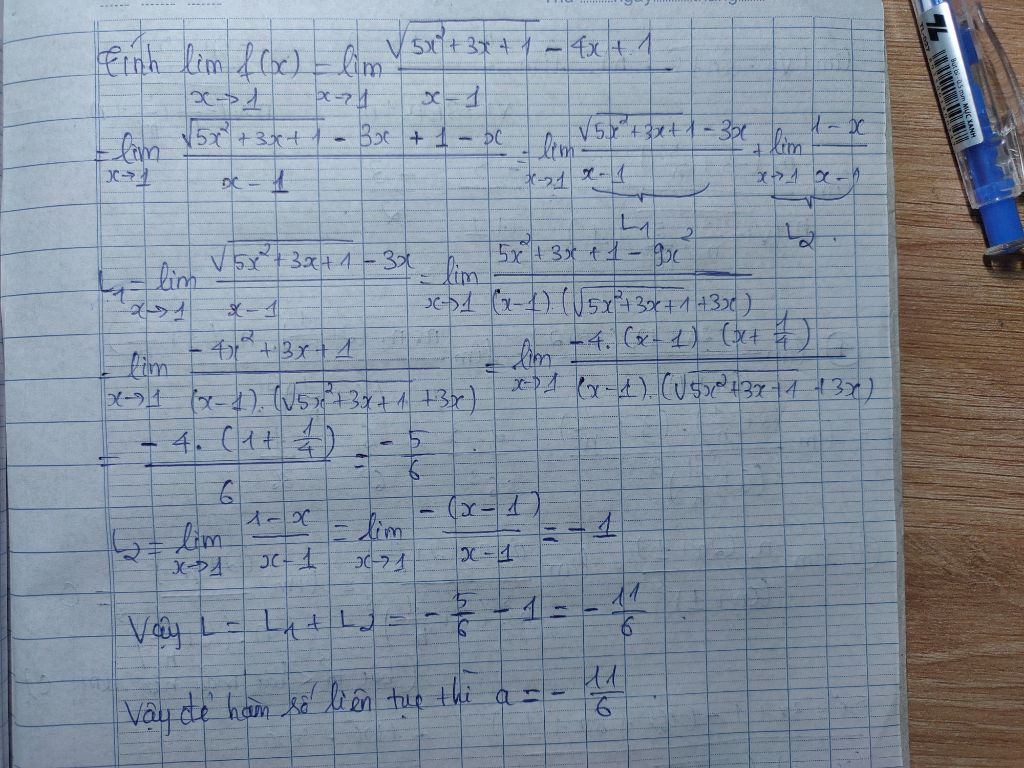 Tính lim f(x) = lim √(5x²+3x+1) - 4x + 1 / x - 1
x→1 x→1
= lim √(5x²+3x+1) - 3x + 1 - x / x - 1 = lim √(5x²+3x+1) - 3x / x - 1 + lim 1 - x / x - 1
x→1 x→1 x→1
L₁ L₂.
L₁ = lim √(5x²+3x+1) - 3x / x - 1 = lim 5x²+3x+1 - 9x² / (x-1)(√(5x²+3x+1) + 3x)
x→1 x→1
= lim -4x²+3x+1 / (x-1).(√(5x²+3x+1) + 3x) = lim -4.(x-1).(x+1/4) / (x-1).(√(5x²+3x+1) + 3x)
x→1 x→1
= -4.(1+1/4) / 6 = -5/6.
L₂ = lim 1-x / x-1 = lim -(x-1) / x-1 = -1
x→1 x→1
Vậy L = L₁ + L₂ = -5/6 - 1 = -11/6.
Vậy để hàm số liên tục thì a = -11/6.